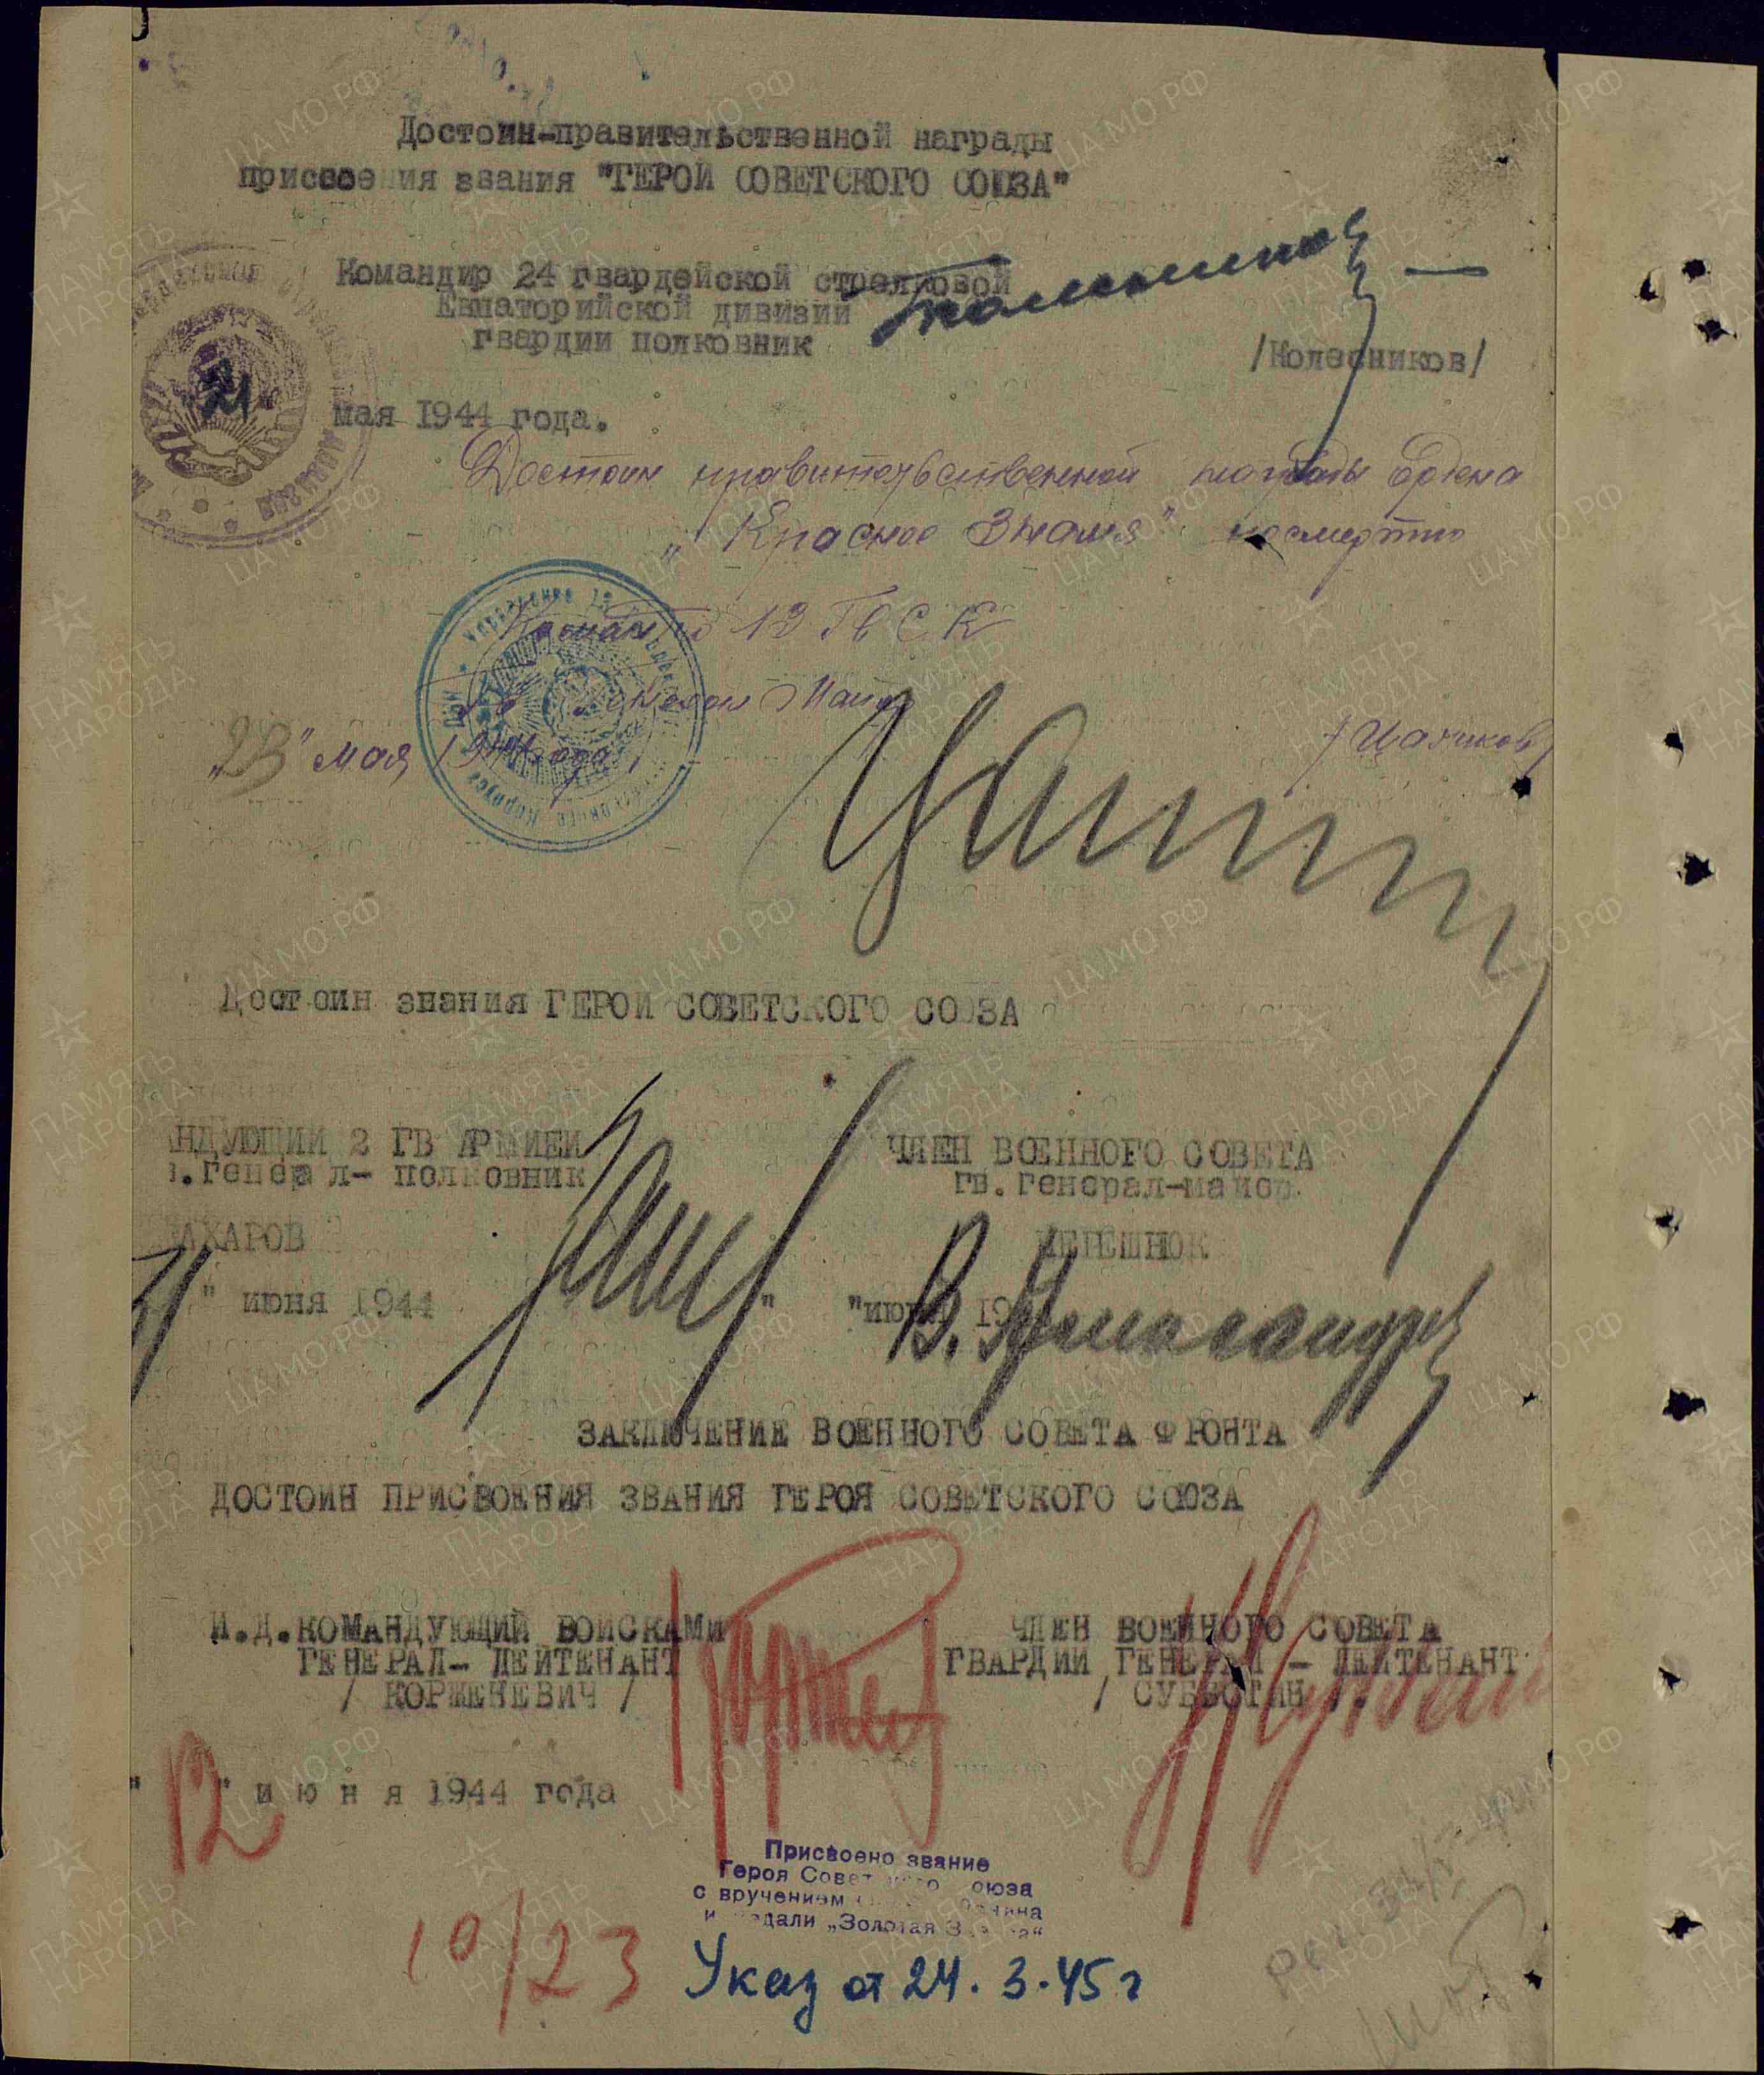 Достоин-правительственной награды
присвоения звания "ГЕРОЙ СОВЕТСКОГО СОЮЗА"
Командир 24 гвардейской стрелковой
Евпаторийской дивизии
гвардии полковник
/Колесников/
"21"
мая 1944 года.
Достоин правительственной награды ордена
„Красное Знамя" посмертно
Командир 13 Гв С К
Гв Генерал Майор
/Цаликов/
„23" мая 1944 года
Достоин знания ГЕРОЙ СОВЕТСКОГО СОЮЗА
НДУЮЩИЙ 2 ГВ АРМИЕЙ
в.генерал- полковник
ЧЛЕН ВОЕННОГО СОВЕТА
гв.генерал-майор
АХАРОВ
" июня 1944
" "июня 19
ЗАКЛЮЧЕНИЕ ВОЕННОГО СОВЕТА ФРОНТА
ДОСТОИН ПРИСВОЕНИЯ ЗВАНИЯ ГЕРОЯ СОВЕТСКОГО СОЮЗА
И.Д.КОМАНДУЮЩИЙ ВОЙСКАМИ
ГЕНЕРАЛ- ЛЕЙТЕНАНТ
/ КОРЖЕНЕВИЧ /
ЧЛЕН ВОЕННОГО СОВЕТА
ГВАРДИИ ГЕНЕРАЛ - ЛЕЙТЕНАНТ
/ СУББОТИН /
" 12 " и ю н я 1944 года
Присвоено звание
Героя Советского Союза
с вручением Ленина
и медали „Золотая Звезда"
10/23
Указ от 24.3.45г
ПАМЯТЬ НАРОДА
ЦАМО.РФ